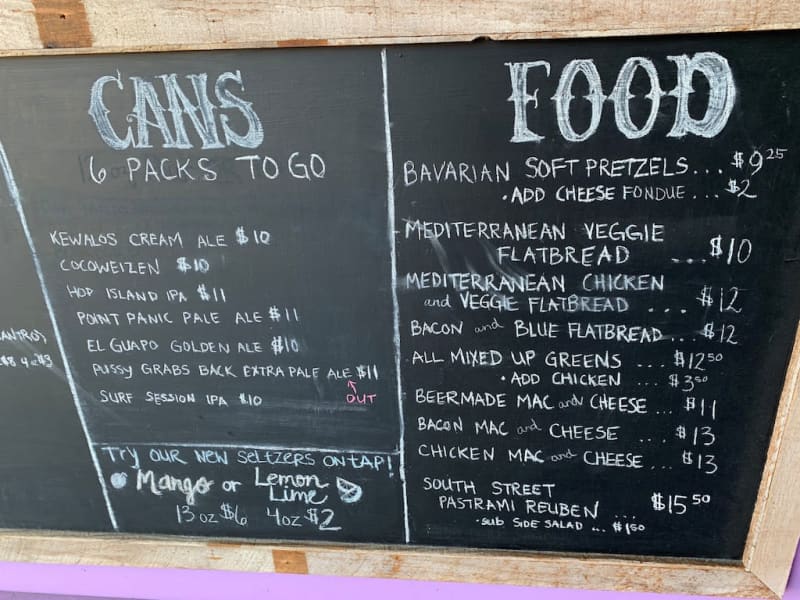 ANTROS
$8 4oz $3
CANS
6 PACKS TO GO
KEWALOS CREAM ALE $10
COCOWEIZEN $10
HOP ISLAND IPA $11
POINT PANIC PALE ALE $11
EL GUAPO GOLDEN ALE $10
PUSSY GRABS BACK EXTRA PALE ALE $11
OUT
SURF SESSION IPA $10
TRY OUR NEW SELTZERS ON TAP!
Mango or Lemon
Lime
13oz $6 4oz $2
FOOD
BAVARIAN SOFT PRETZELS... $9 25
• ADD CHEESE FONDUE... $2
MEDITERRANEAN VEGGIE
FLATBREAD ... $10
MEDITERRANEAN CHICKEN
and VEGGIE FLATBREAD ... $12
BACON and BLUE FLATBREAD... $12
ALL MIXED UP GREENS ... $12 50
• ADD CHICKEN ... $3 50
BEERMADE MAC and CHEESE... $11
BACON MAC and CHEESE ... $13
CHICKEN MAC and CHEESE... $13
SOUTH STREET
PASTRAMI REUBEN ... $15 50
• SUB SIDE SALAD ... $1 50